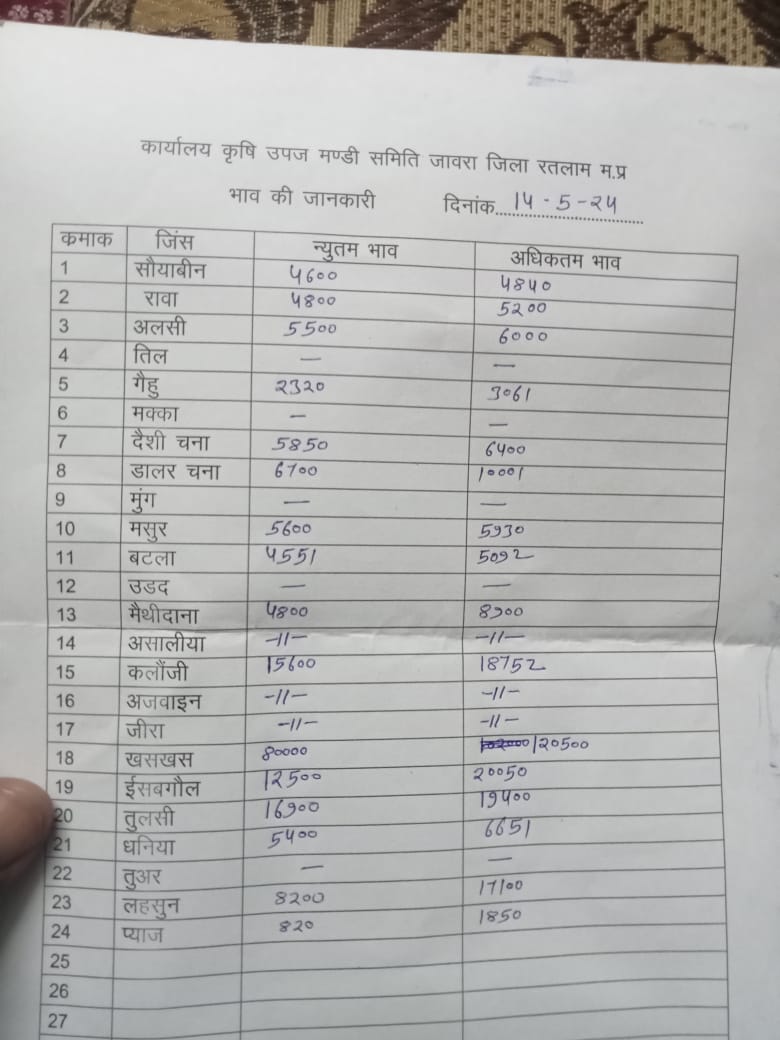 कार्यालय कृषि उपज मण्डी समिति जावरा जिला रतलाम म.प्र
भाव की जानकारी दिनांक 14-5-24
कमाक जिंस न्युतम भाव अधिकतम भाव
1 सौयाबीन 4600 4840
2 रावा 4800 5200
3 अलसी 5500 6000
4 तिल — —
5 गैहु 2320 3061
6 मक्का — —
7 दैशी चना 5850 6400
8 डालर चना 6700 10001
9 मुंग — —
10 मसुर 5600 5930
11 बटला 4551 5092
12 उडद — —
13 मैथीदाना 4800 8900
14 असालीया -11- -11-
15 कलौंजी 15600 18752
16 अजवाइन -11- -11-
17 जीरा -11- -11-
18 खसखस 80000 120500
19 ईसबगौल 12500 20050
20 तुलसी 16900 19400
21 धनिया 5400 6651
22 तुअर — —
23 लहसुन 8200 17100
24 प्याज 820 1850
25
26
27